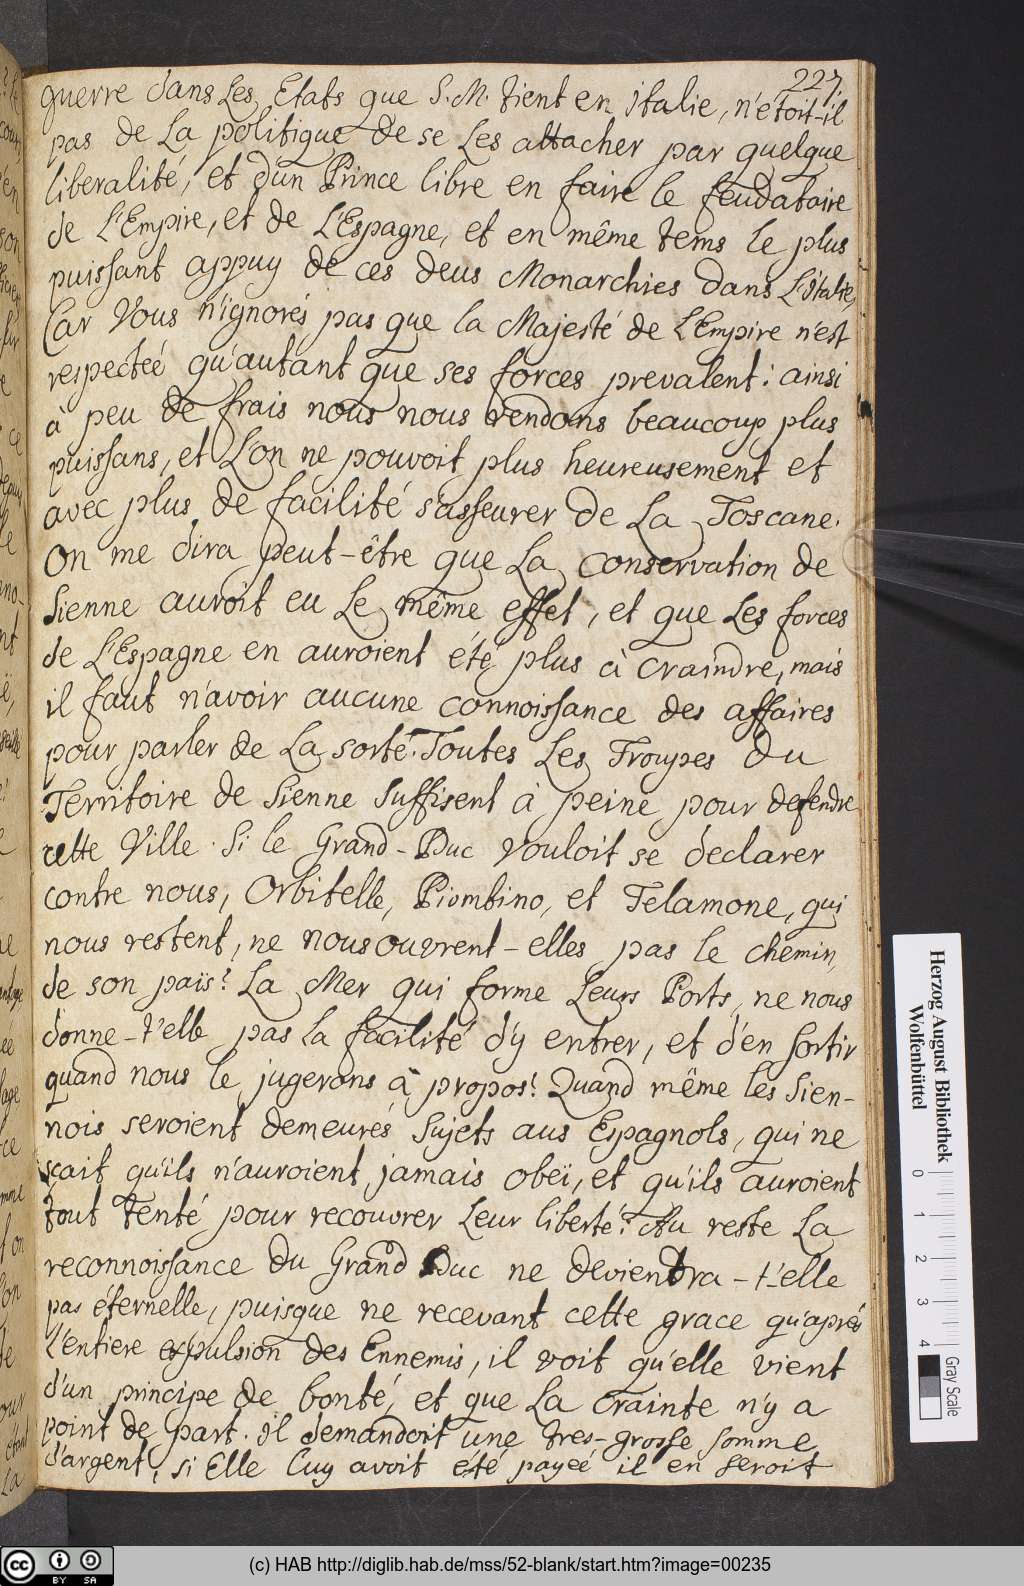 227.
guerre dans Les Etats que S. M. tient en italie, n'étoit-il
pas de La politique de se Les attacher par quelque
liberalité, et d'un Prince libre en faire le feudataire
de L'Empire, et de L'Espagne, et en même tems le plus
puissant appuy de ces deus Monarchies dans L'italie,
Car Vous n'ignorés pas que la Majesté de L'Empire n'est
respecteé qu'autant que ses forces prevalent: ainsi
à peu de frais nous nous rendons beaucoup plus
puissans, et L'on ne pouvoit plus heureusement et
avec plus de facilité s'asseurer de La Toscane.
On me dira peut-être que La conservation de
Sienne auroit eu Le même effet, et que Les forces
de L'Espagne en auroient été plus à craindre, mais
il faut n'avoir aucune connoissance des affaires
pour parler de La sorte. Toutes Les Troupes du
Territoire de Sienne suffisent à peine pour defendre
cette Ville. Si le Grand-Duc vouloit se declarer
contre nous, Orbitelle, Piombino, et Telamone, qui
nous restent, ne nous ouvrent-elles pas le chemin
de son païs? La Mer qui forme Leurs Ports, ne nous
donne-t'elle pas la facilité d'y entrer, et d'en sortir
quand nous le jugerons à propos? Quand même les Sien-
nois seroient demeurés Sujets aus Espagnols, qui ne
sçait qu'ils n'auroient jamais obeï, et qu'ils auroient
tout tenté pour recouvrer Leur liberté? Au reste La
reconnoissance du Grand Duc ne deviendra-t-'elle
pas éternelle, puisque ne recevant cette grace qu'aprés
L'entiere expulsion des Ennemis, il voit qu'elle vient
d'un principe de bonté, et que La crainte n'y a
point de part. il demandoit une tres-grosse somme
d'argent, si Elle Luy avoit été payeé il en seroit
Herzog August Bibliothek
Wolfenbüttel
0 1 2 3 4
Gray Scale
cc BY SA
(c) HAB http://diglib.hab.de/mss/52-blank/start.htm?image=00235